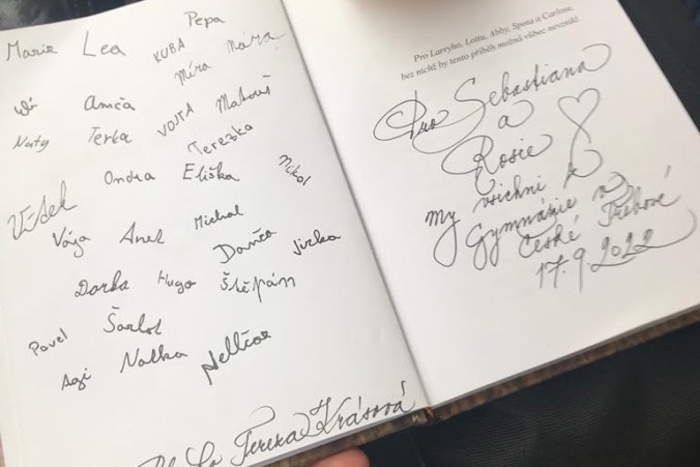 Marie Lea KUBA Pepa
Míra Mára
Amča
Naty Terka VOJTA Matouš
Terezka
Ondra Eliška Nikol
Vítek
Vája Anet Michal
Danča Jirka
Dorka Hugo Štěpán
Pavel Šarlot
Agi Natka
Tereza Krásová
Pro Larryho, Lottu, Abby, Spota a Carlose,
bez nichž by tento příběh možná vůbec nevznikl.
Pro Sebastiana
a
Rosie
my všichni z
Gymnázia v
České Třebové
17.9.2022